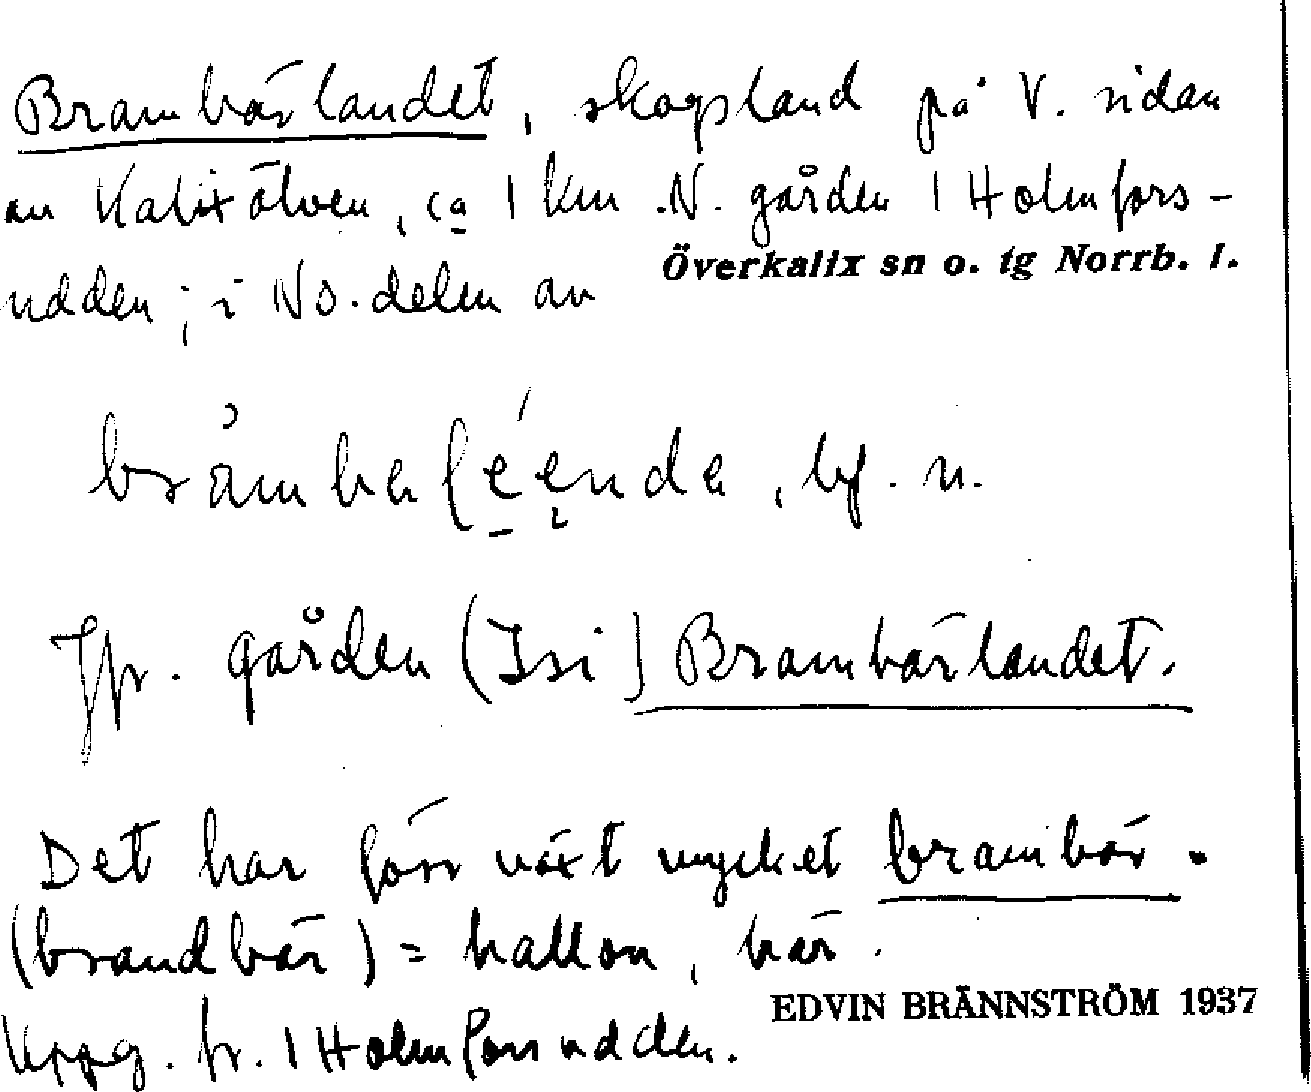 Brambärlandet, skogsland på V. sidan
av Kalixälven, ca 1 km N. gården 1 Holmfors-
udden; i NÖ. delen av
Överkalix sn o. tg Norrb. l.
bf. n.
Jfr. gården (Isi) Brambärlandet.
Det har förr växt mycket brambär.
(brandbär) = hallon, här.
Uppg. fr. 1 Holmforsudden.
EDVIN BRÄNNSTRÖM 1937